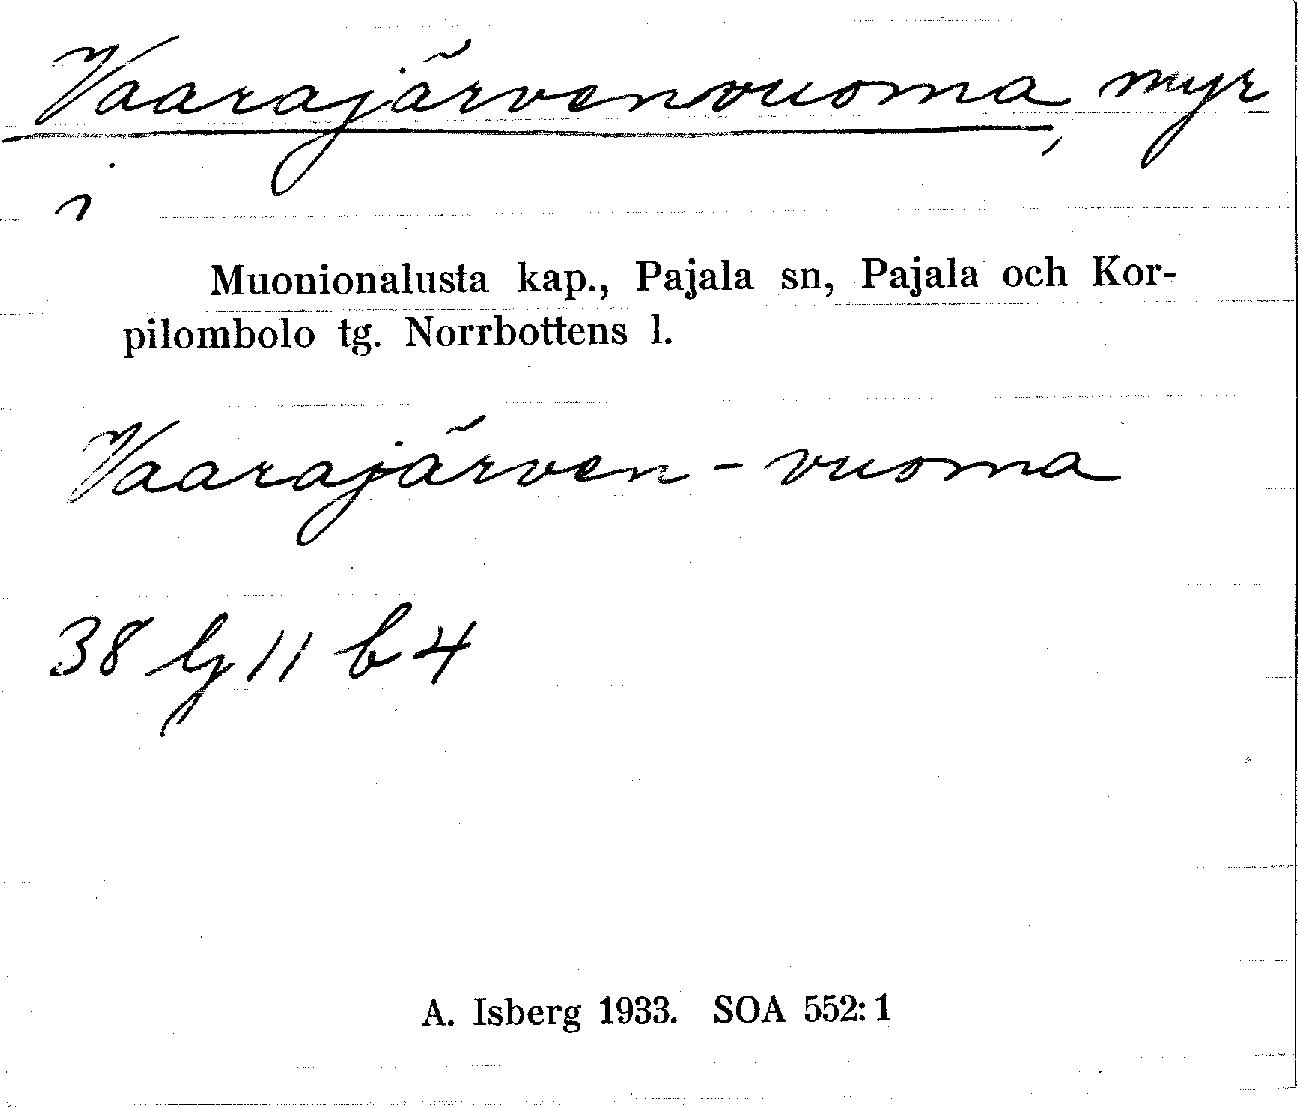 Vaarajärvenvuoma, myr
i
Muonionalusta kap., Pajala sn, Pajala och Kor-
pilombolo tg. Norrbottens l.
Vaarajärven - vuoma
38 lj 11 b 4
A. Isberg 1933. SOA 552: 1